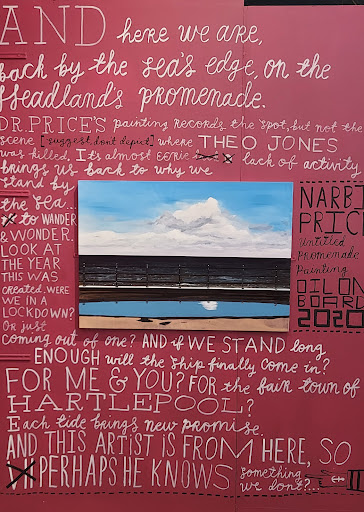 AND here we are,
back by the sea's edge, on the
Headland's promenade.
DR. PRICE'S painting records the spot, but not the
scene [suggest, dont depict] where THEO JONES
was killed. It's almost eerie lack of activity
brings us back to why we
stand by
the sea...
to WANDER
& WONDER.
LOOK AT
THE YEAR
THIS WAS
CREATED. WERE
WE IN A
LOCKDOWN?
Or just
coming out of one? AND if WE STAND long
ENOUGH will the ship finally come in?
FOR ME & YOU? FOR the fair town of
HARTLEPOOL?
Each tide brings new promise.
AND THIS ARTIST IS FROM HERE, SO
PERHAPS HE KNOWS something
we dont?...
NARBI
PRICE
Untitled
Promenade
Painting
OIL ON
BOARD
2020